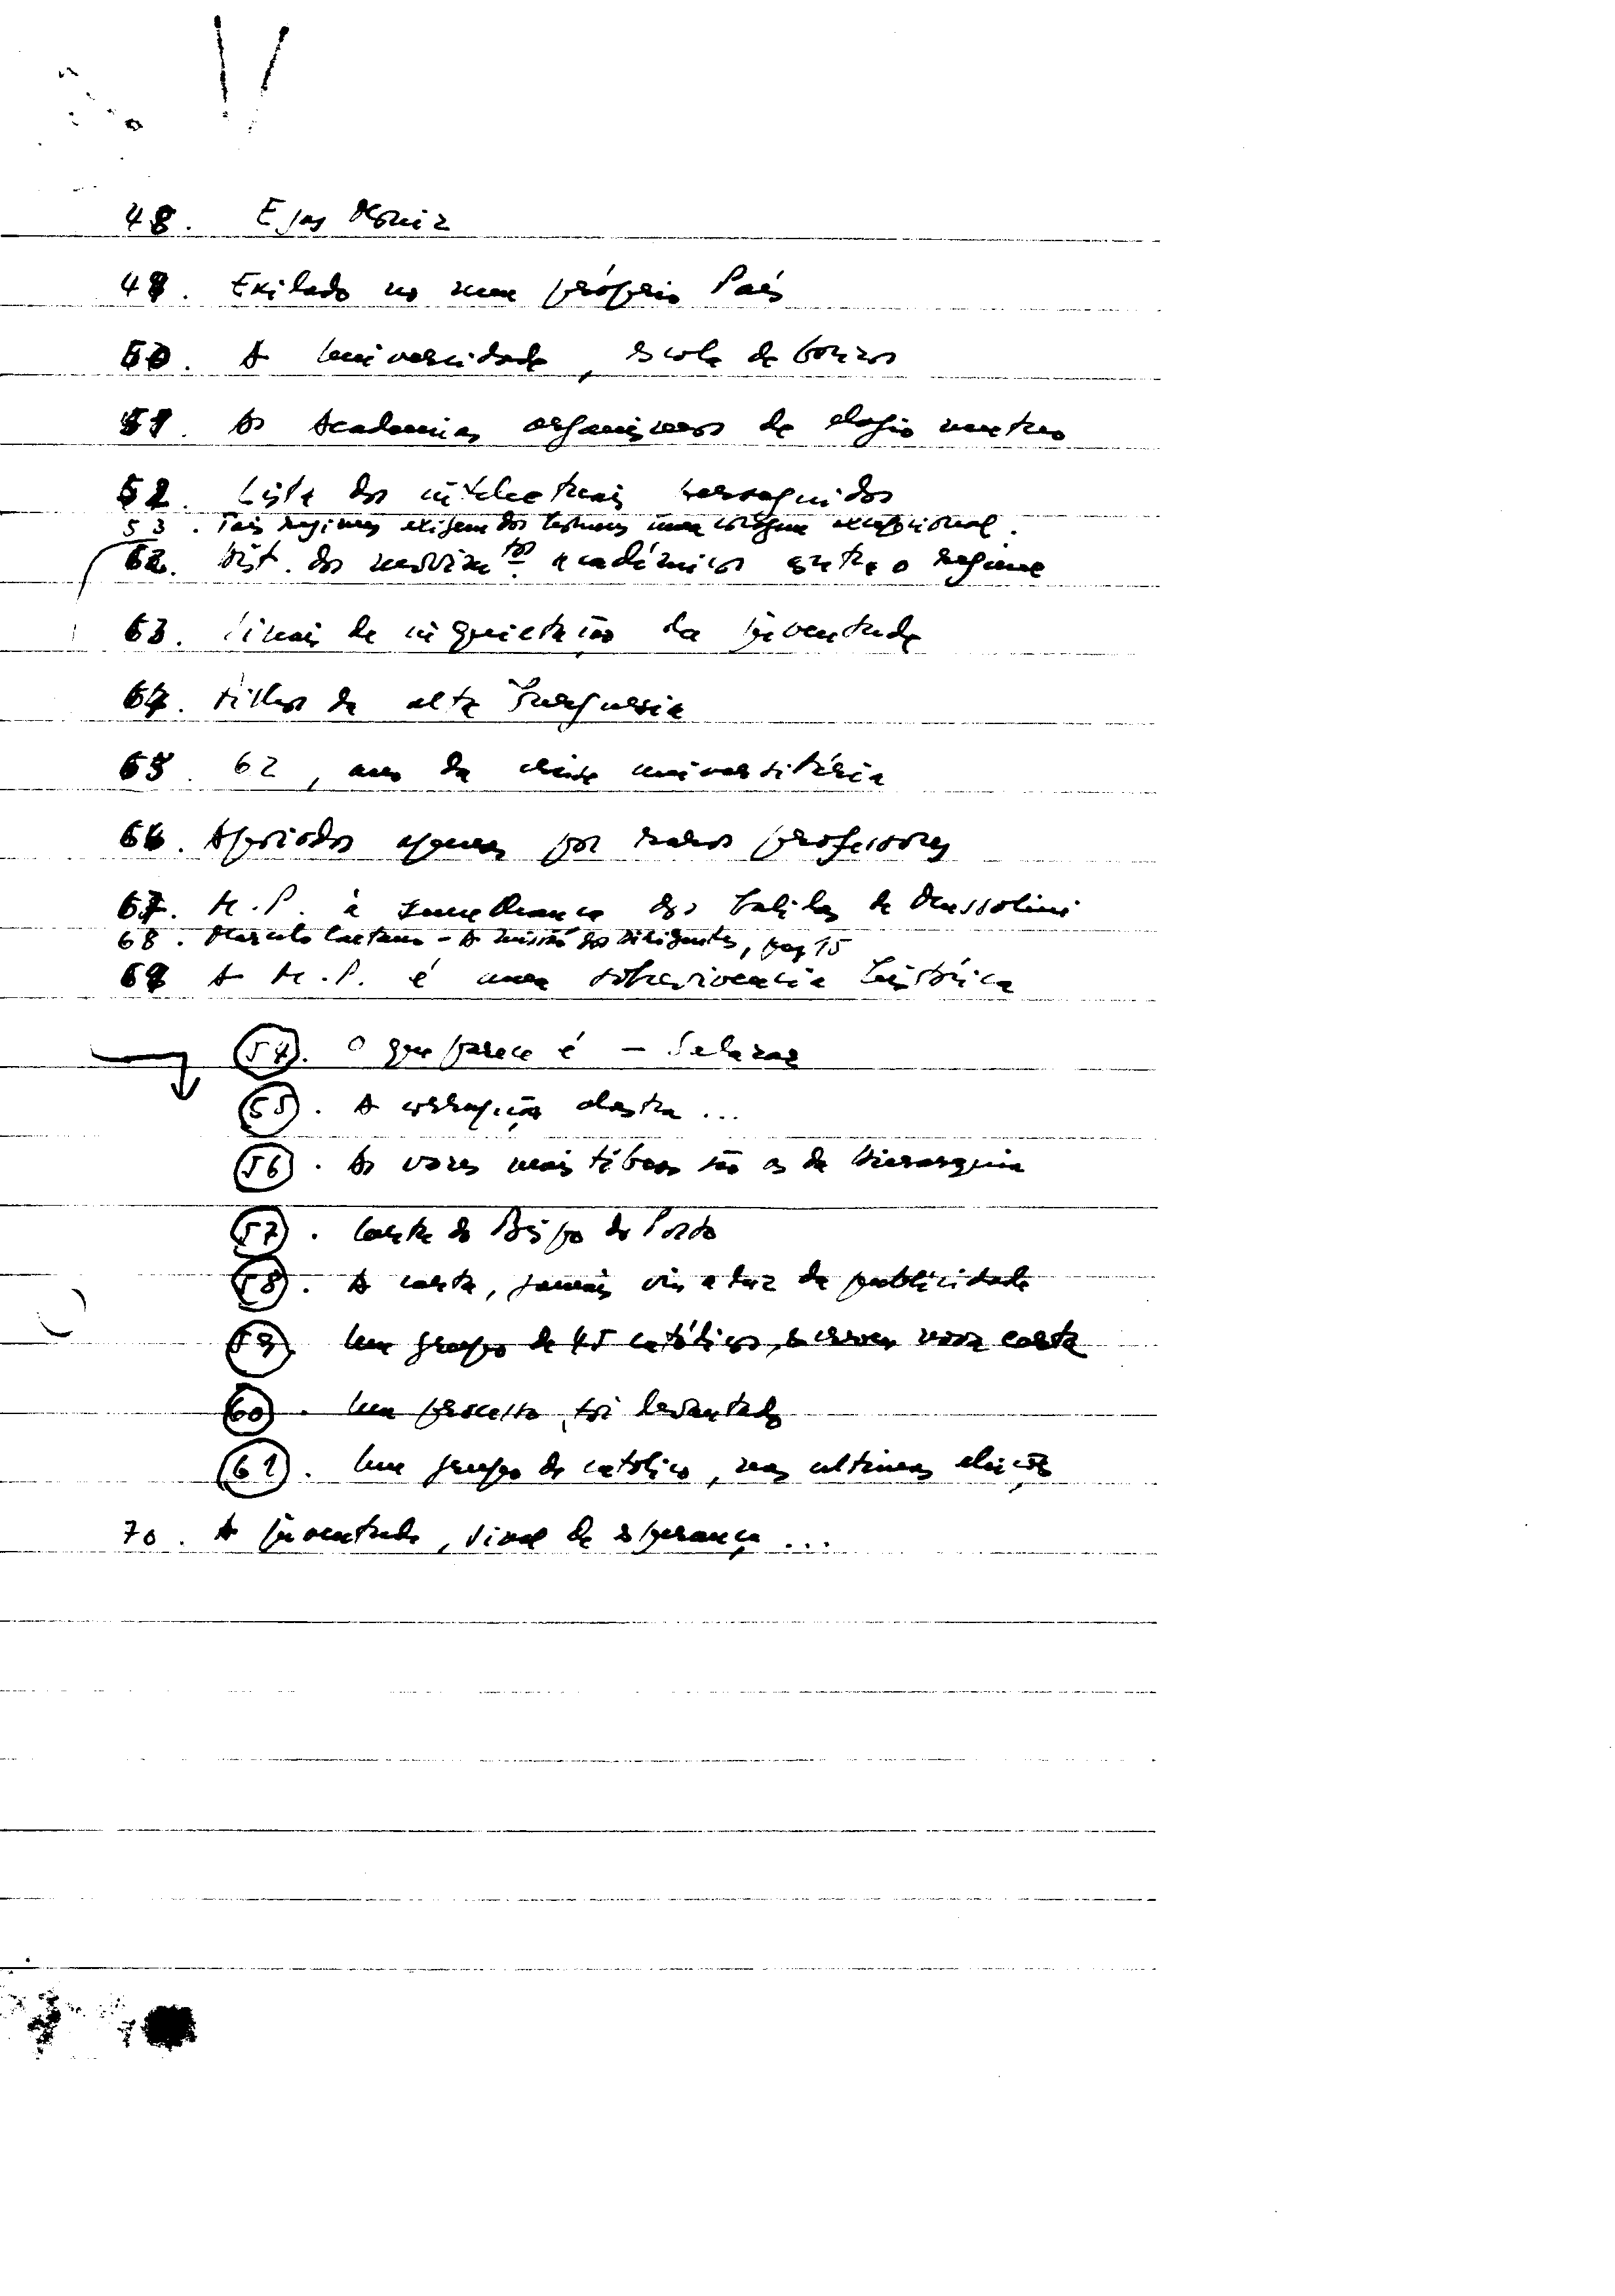 48. Egas Moniz
49. Exilado no seu próprio País
50. A Universidade, escola de bonzos
51. As Academias organismos de elogio mutuo
52. Lista dos intelectuais perseguidos
53. Tais regimes exigem dos homens uma coragem excepcional.
62. Hist. dos movimen.tos académicos contra o regime
63. Sinais de inquietação da juventude
64. Filhos da alta burguesia
65. 62, ano da crise universitária
66. Apoiados apenas por raros professores
67. M.P. à semelhança dos balilas de Mussolini
68. Marcelo Caetano - A missão dos Dirigentes, pag 15
69 A M.P. é uma sobrevivencia histórica
54. O que parece é - Salazar
55. A corrupção alastra ...
56. As vozes mais tíbias são as da Hierarquia
57. Carta do Bispo do Porto
58. A carta, jamais viu a luz da publicidade
59. Um grupo de 45 católicos, escreveu nova carta
60. Um processo foi levantado
61. Um grupo de católicos, nas ultimas eleições
70. A juventude, sinal de esperança ...